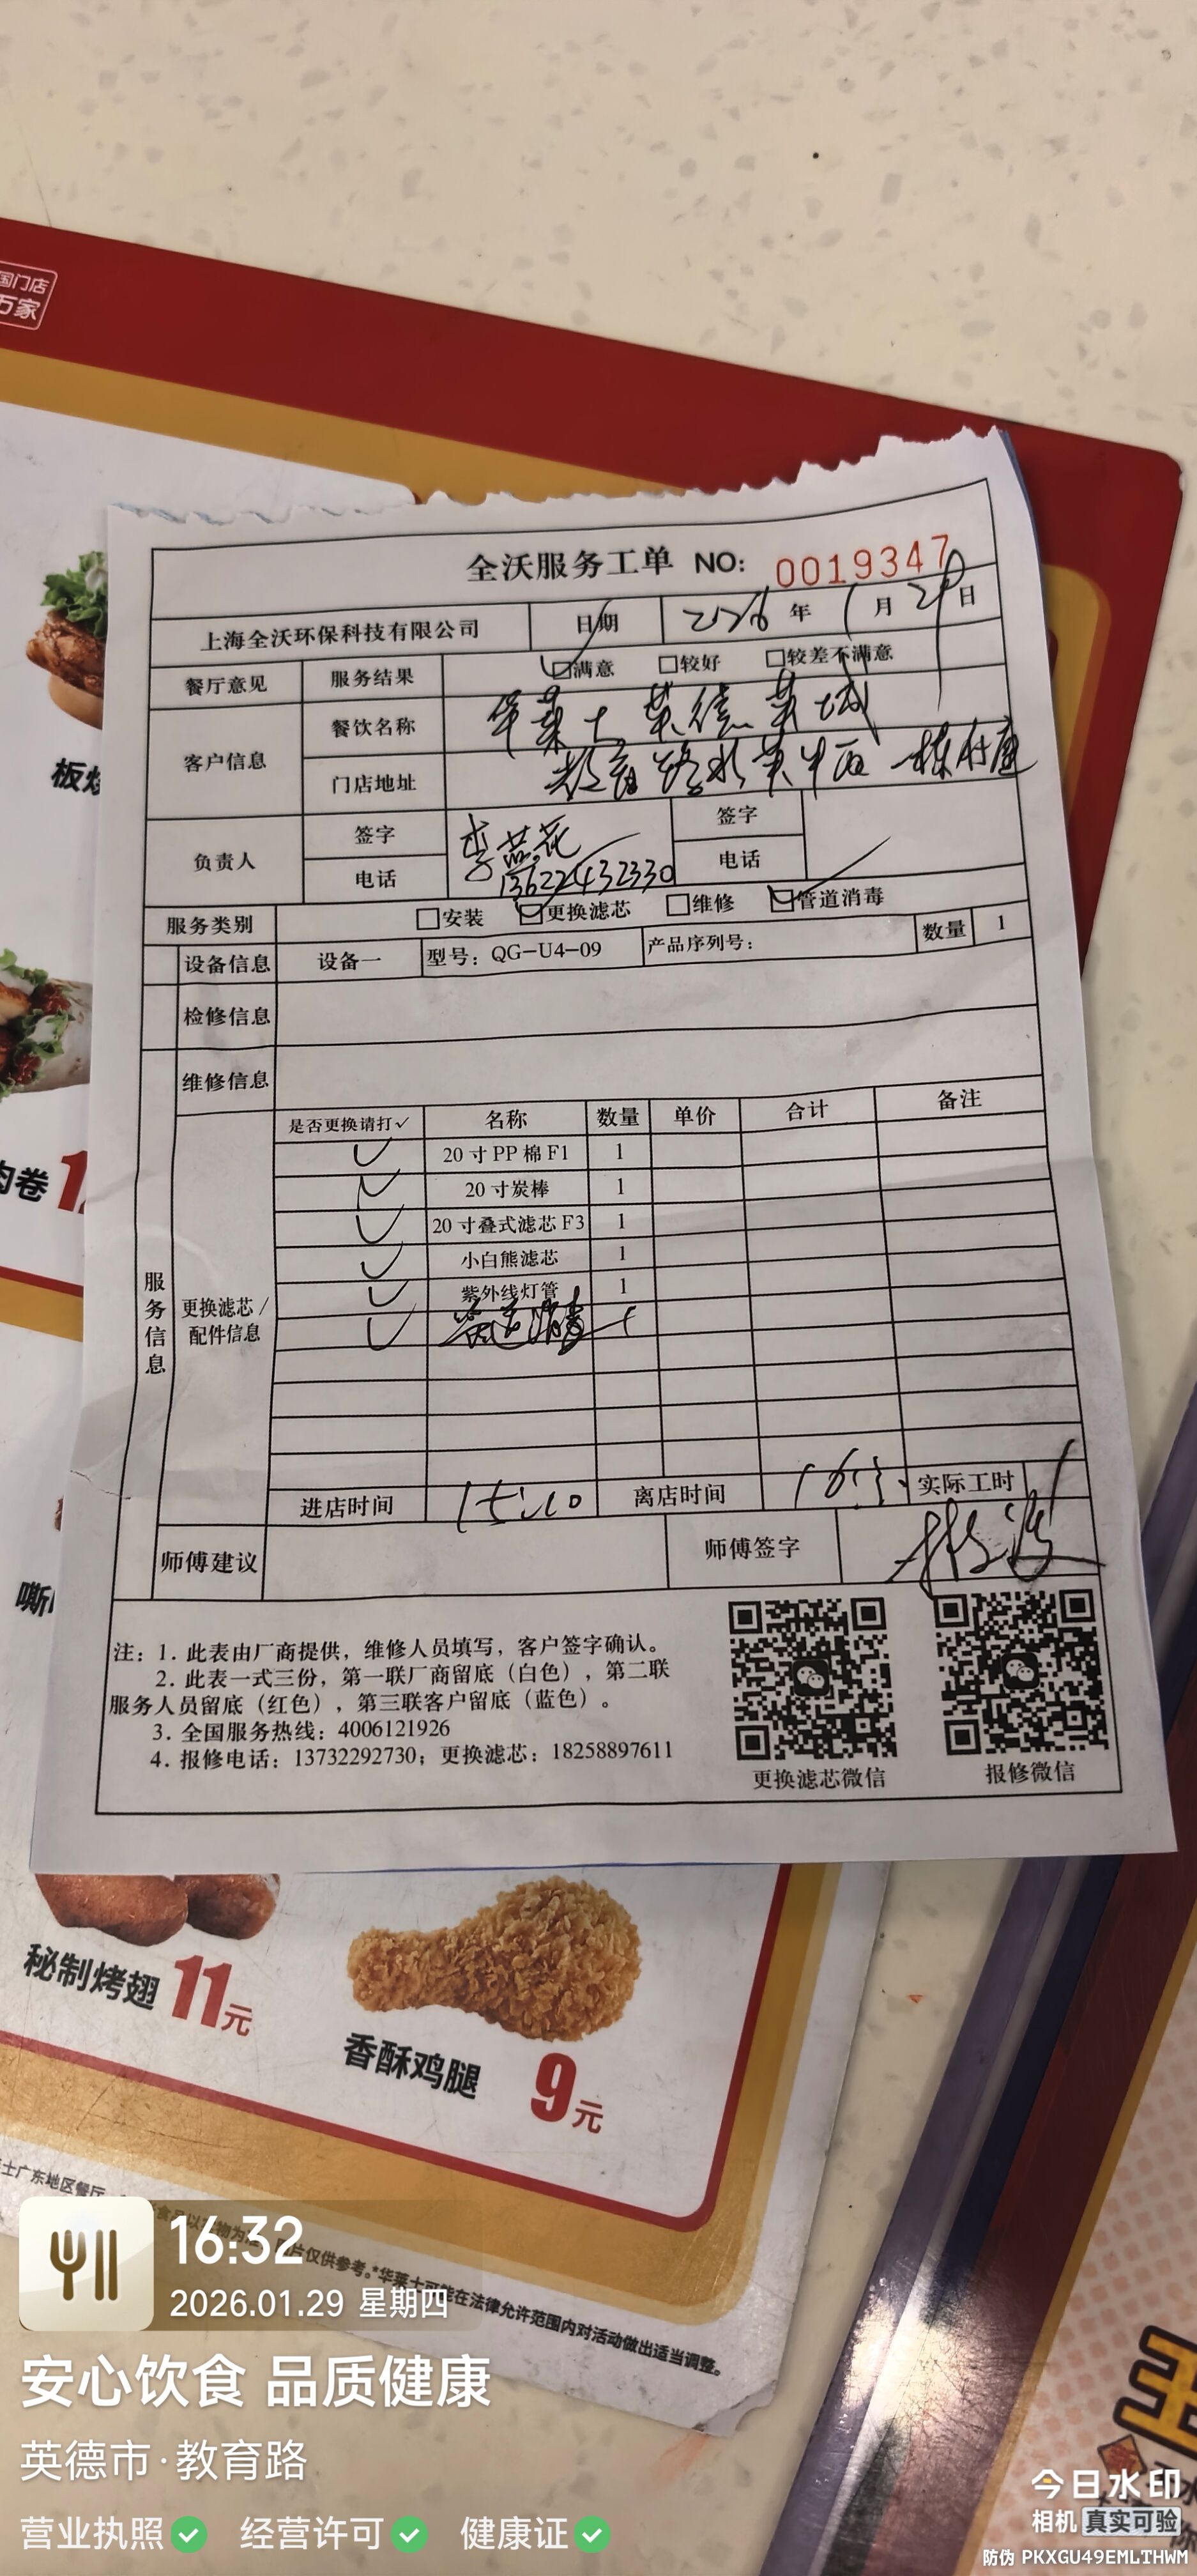 国门店
万家
全沃服务工单 NO: 0019347
上海全沃环保科技有限公司 日期 2026 年 1 月 29 日
餐厅意见 服务结果 满意 较好 较差不满意
客户信息 餐饮名称 华莱士 英德英城
门店地址 教育路水英中西一栋
负责人 签字 李 花 签字
电话 电话
服务类别 安装 更换滤芯 维修 管道消毒
设备信息 设备一 型号: QG-U4-09 产品序列号: 数量 1
检修信息
维修信息
服务信息
更换滤芯/
配件信息
是否更换请打✓ 名称 数量 单价 合计 备注
✓ 20寸PP棉F1 1
✓ 20寸炭棒 1
✓ 20寸叠式滤芯F3 1
✓ 小白熊滤芯 1
✓ 紫外线灯管 1
✓ 管道消毒 1
进店时间 15:10 离店时间 实际工时
师傅建议 师傅签字
注: 1. 此表由厂商提供, 维修人员填写, 客户签字确认。
2. 此表一式三份, 第一联厂商留底(白色), 第二联
服务人员留底(红色), 第三联客户留底(蓝色)。
3. 全国服务热线: 4006121926
4. 报修电话: 13732292730; 更换滤芯: 18258897611
更换滤芯微信 报修微信
板烧
肉卷
秘制烤翅 11元
香酥鸡腿 9元
士广东地区餐厅
片仅供参考。*华莱士可能在法律允许范围内对活动做出适当调整。
16:32
2026.01.29 星期四
安心饮食 品质健康
英德市·教育路
营业执照 经营许可 健康证
今日水印
相机 真实可验
防伪 PKXGU49EMLTHWM